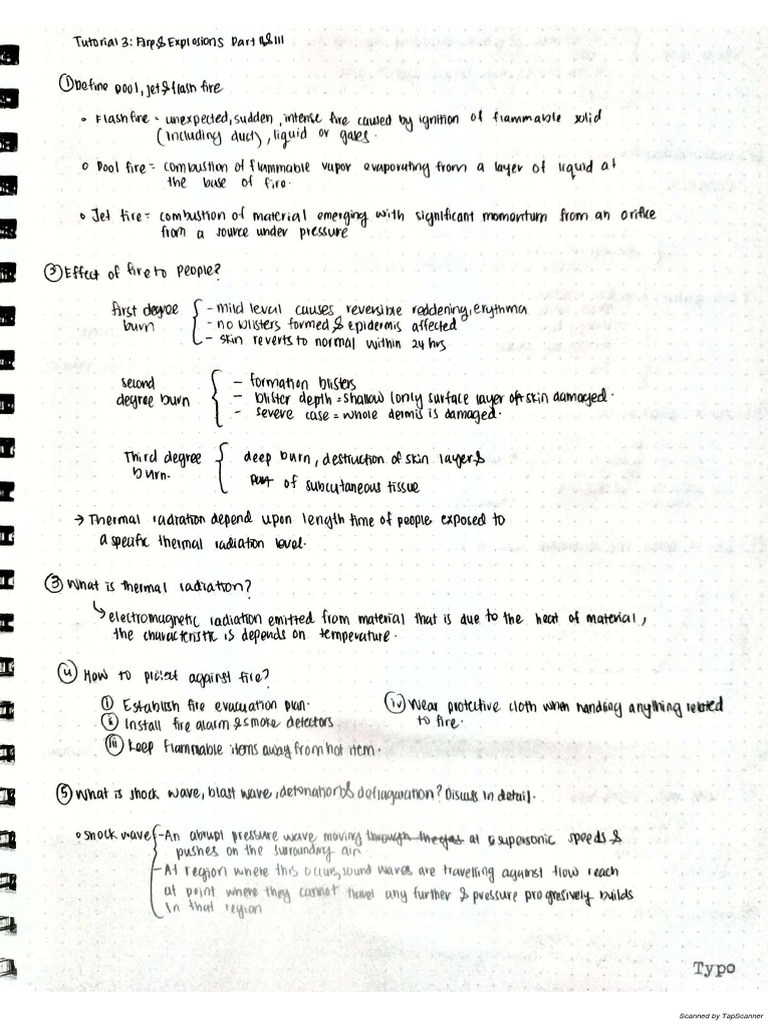 Tutorial 3: Fire & Explosions Part II & III
① Define pool, jet & flash fire
• Flash fire = unexpected, sudden, intense fire caused by ignition of flammable solid
(including dust), liquid or gases.
• Pool fire = combustion of flammable vapor evaporating from a layer of liquid at
the base of fire.
• Jet fire = combustion of material emerging with significant momentum from an orifice
from a source under pressure
② Effect of fire to people?
first degree burn { - mild level causes reversible reddening, erythma
- no blisters formed & epidermis affected
- skin reverts to normal within 24 hrs
second degree burn { - formation blisters
- blister depth = shallow (only surface layer of skin damaged.
- severe case = whole dermis is damaged.
Third degree burn. { deep burn, destruction of skin layer &
part of subcutaneous tissue
→ Thermal radiation depend upon length time of people exposed to
a specific thermal radiation level.
③ What is thermal radiation?
↳ electromagnetic radiation emitted from material that is due to the heat of material,
the characteristic is depends on temperature.
④ How to protect against fire?
ⓘ Establish fire evacuation plan.
ⓘⓘ Install fire alarm & smoke detectors
ⓘⓘⓘ Keep flammable items away from hot item.
iv Wear protective cloth when handling anything related
to fire.
⑤ What is shock wave, blast wave, detonation & deflagaration? Discuss in detail.
• shock wave { - An abrupt pressure wave moving through the gas at a supersonic speeds &
pushes on the surrounding air
- At region where this occurs, sound waves are travelling against flow reach
at point where they cannot travel any further & pressure progresively builds
in that region
Typo
Scanned by TapScanner